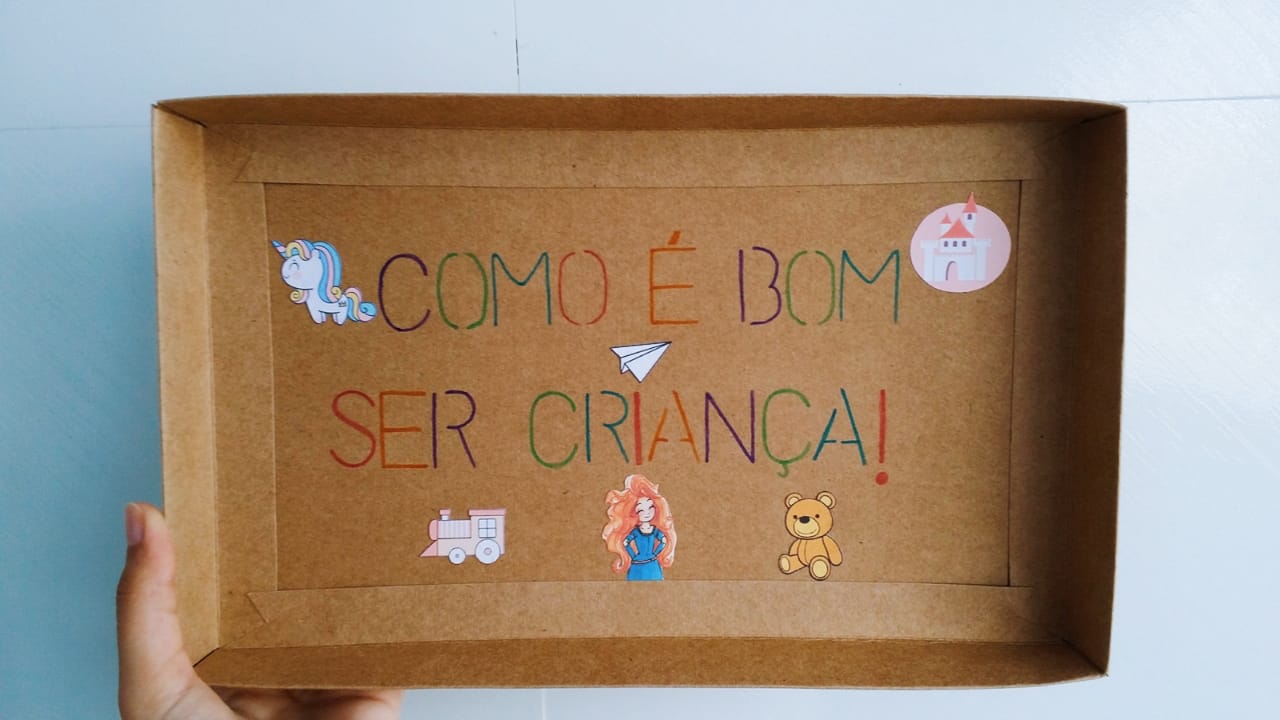 COMO É BOM
SER CRIANÇA!